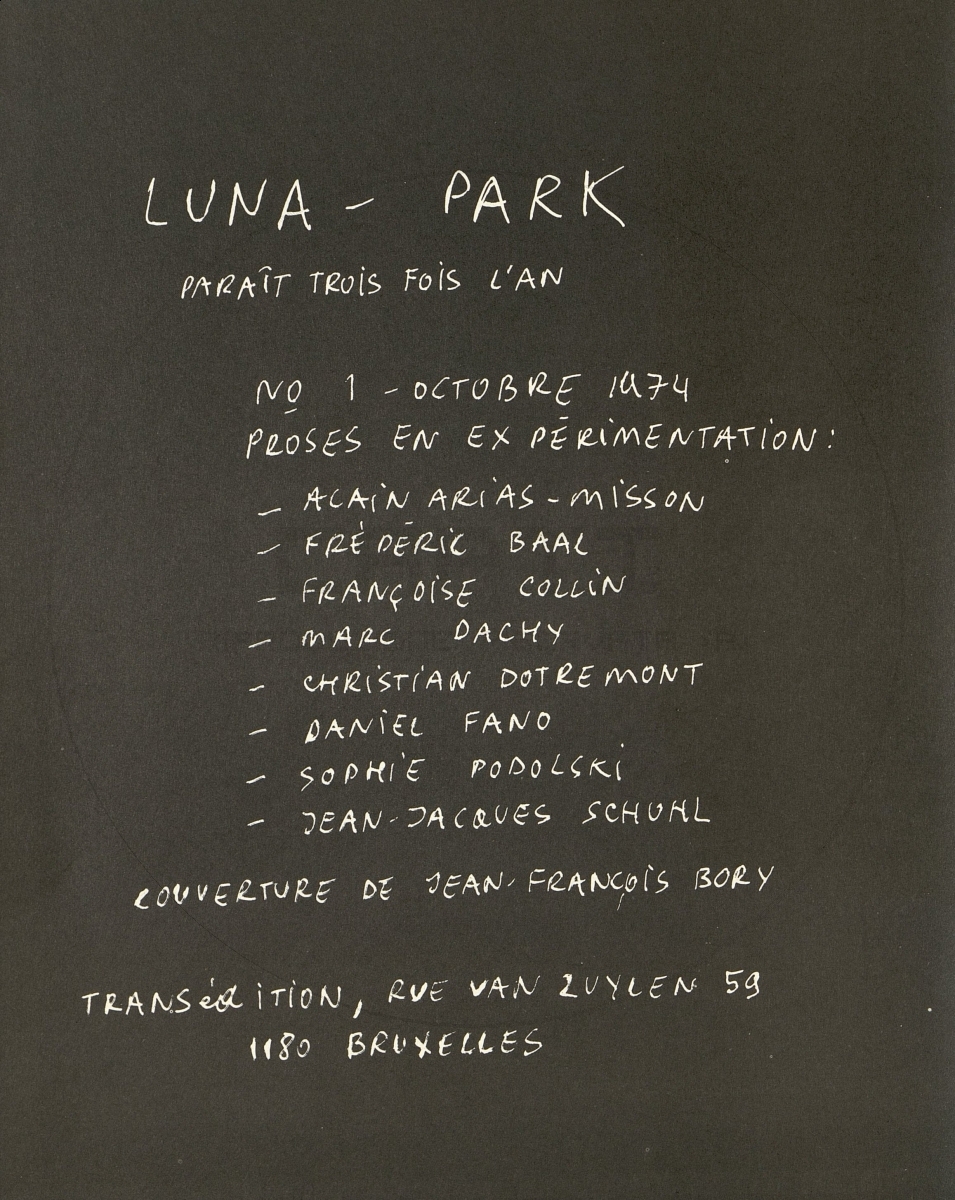 LUNA - PARK
PARAÎT TROIS FOIS L'AN
NO 1 - OCTOBRE 1974
PROSES EN EXPÉRIMENTATION :
- ALAIN ARIAS-MISSON
- FRÉDÉRIC BAAL
- FRANÇOISE COLLIN
- MARC DACHY
- CHRISTIAN DOTREMONT
- DANIEL FANO
- SOPHIE PODOLSKI
- JEAN-JACQUES SCHUHL
COUVERTURE DE JEAN-FRANÇOIS BORY
TRANSéDITION, RUE VAN ZUYLEN 59
1180 BRUXELLES